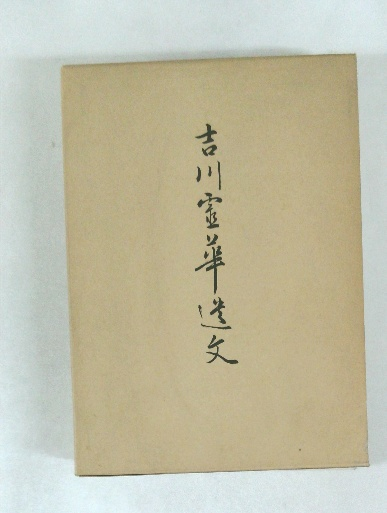 吉川靈華遺文